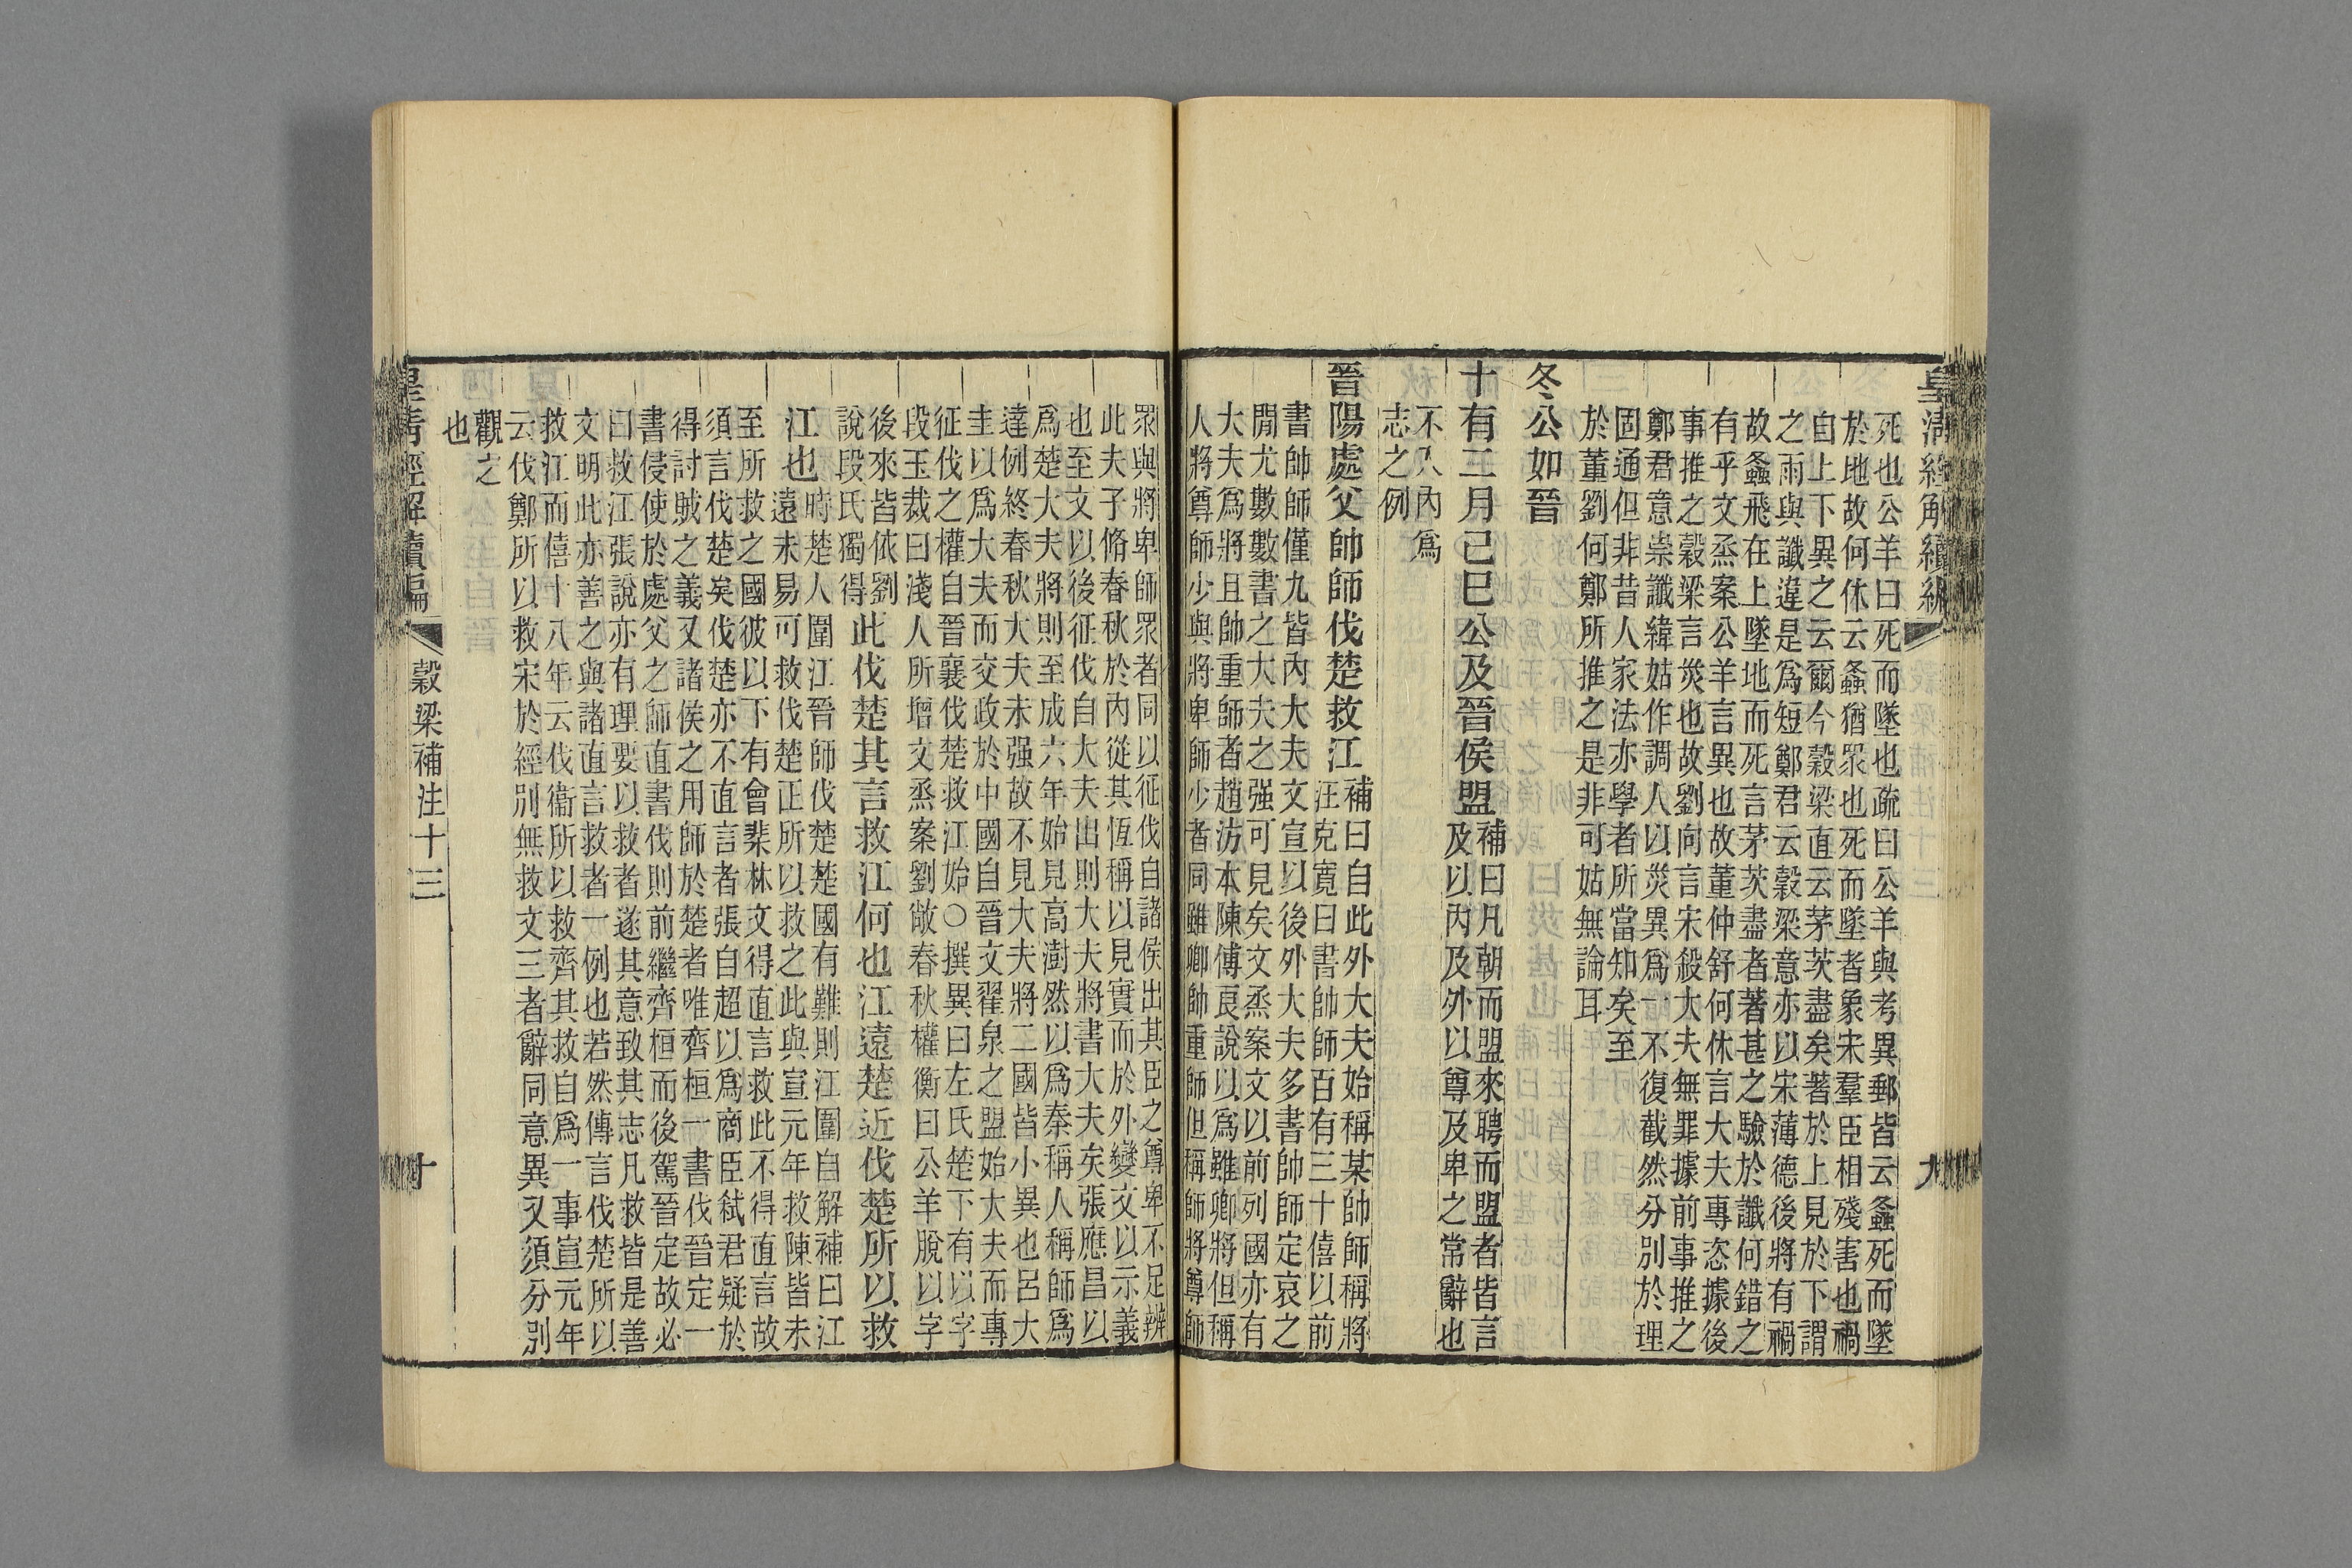 皇清經解續編
九
死也公羊曰死而墜也疏曰公羊與考異郵皆云螽死而墜
於地故何休云螽猶眾也死而墜者象宋羣臣相殘害也禍
自上下異之云爾今穀梁直云茅茨盡矣著於上見於下謂
之雨與讖違是爲短鄭君云穀梁意亦以宋薄德後將有禍
故螽飛在上墜地而死言茅茨盡者著甚之驗於讖何錯之
有乎文烝案公羊言異也故董仲舒何休言大夫專恣據後
事推之穀梁言災也故劉向言宋殺大夫無罪據前事推之
鄭君意崇讖緯姑作調人以災異爲一不復截然分別於理
固通但非昔人家法亦學者所當知矣至
於董劉何鄭所推之是非可姑無論耳
冬公如晉
十有二月己巳公及晉侯盟
補曰凡朝而盟來聘而盟者皆言
及以內及外以尊及卑之常辭也
不入內爲
志之例
晉陽處父帥師伐楚救江
補曰自此外大夫始稱某帥師稱將
汪克寬曰書帥師百有三十僖以前
書帥師僅九皆內大夫文宣以後外大夫多書帥師定哀之
閒尤數數書之大夫之强可見矣文烝案文以前列國亦有
大夫爲將且帥重師者趙汸本陳傅良說以爲雖卿將但稱
人將尊師少與將卑師少者同雖卿帥重師但稱師將尊師
眾與將卑師眾者同以征伐自諸侯出其臣之尊卑不足辨
此夫子脩春秋於內從其恆稱以見實而於外變文以示義
也至文以後征伐自大夫出則大夫將書大夫矣張應昌以
爲楚大夫將則至成六年始見高澍然以爲秦稱人稱師爲
達例終春秋大夫未强故不見大夫將二國皆小異也呂大
圭以爲大夫而交政於中國自晉文翟泉之盟始大夫而專
征伐之權自晉襄伐楚救江始○撰異曰左氏楚下有以字
段玉裁曰淺人所增文烝案劉敞春秋權衡曰公羊脫以字
後來皆依劉
說段氏獨得
此伐楚其言救江何也江遠楚近伐楚所以救
江也
時楚人圍江晉師伐楚楚國有難則江圍自解補曰江
遠未易可救伐楚正所以救之此與宣元年救陳皆未
至所救之國彼以下有會棐林文得直言救此不得直言故
須言伐楚矣伐楚亦不直言者張自超以爲商臣弑君疑於
得討賊之義又諸侯之用師於楚者唯齊桓一書伐晉定一
書侵使於處父之師直書伐則前繼齊桓而後駕晉定故必
曰救江張說亦有理要以救者遂其意致其志凡救皆是善
文明此亦善之與諸直言救者一例也若然傳言伐楚所以
救江而僖十八年云伐衞所以救齊其救自爲一事宣元年
云伐鄭所以救宋於經別無救文三者辭同意異又須分別
觀之
也
皇清經解續編
穀梁補注十三
十